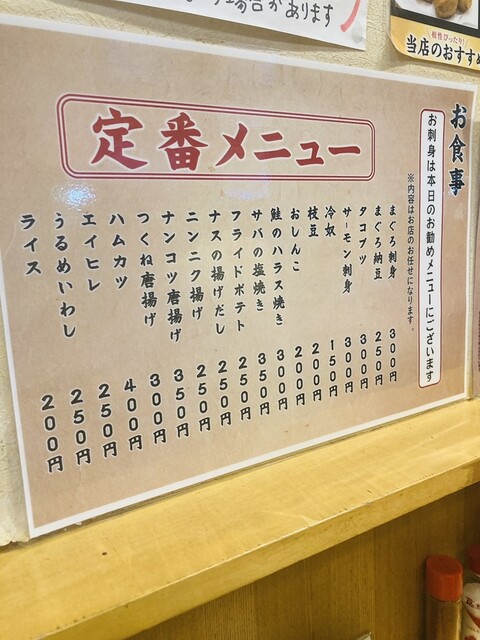 場合があります
相性ぴったり!
当店のおすすめ
定番メニュー
お食事
お刺身は本日のお勧めメニューにございます
※内容はお店のお任せになります。
まぐろ刺身 300円
まぐろ納豆 250円
タコブツ 300円
サーモン刺身 300円
冷奴 150円
枝豆 200円
おしんこ 200円
鮭のハラス焼き 300円
サバの塩焼き 350円
フライドポテト 250円
ナスの揚げだし 250円
ニンニク揚げ 250円
ナンコツ唐揚げ 350円
つくね唐揚げ 300円
ハムカツ 400円
エイヒレ 250円
うるめいわし 250円
ライス 200円